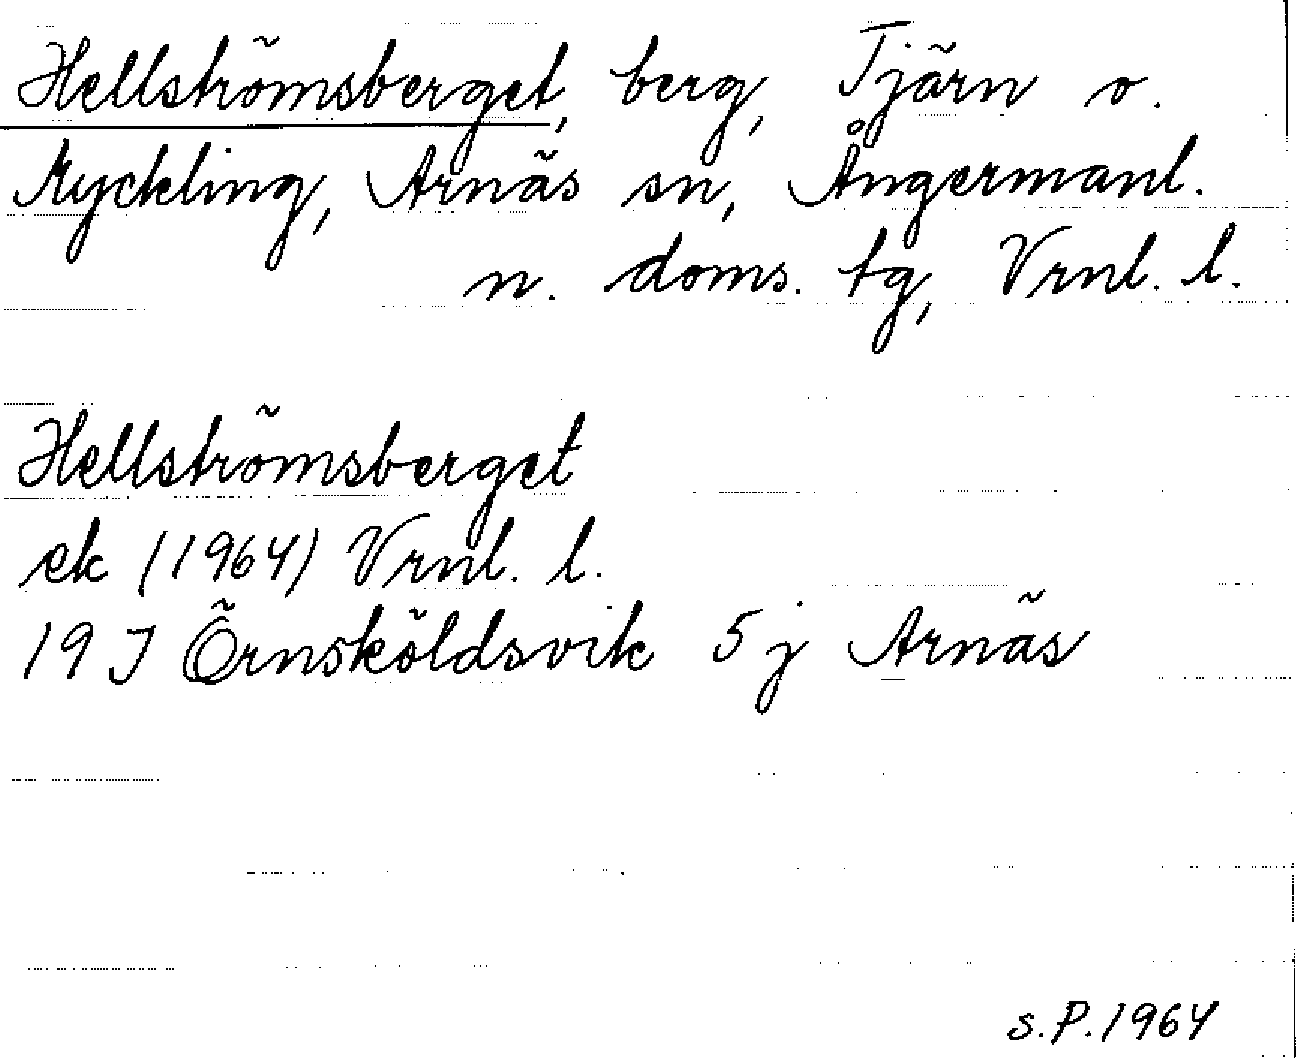 Hellströmsberget, berg, Tjärn o.
Myckling, Arnäs sn, Ångermanl.
n. doms. tg, Vrnl. l.
Hellströmsberget
ek (1964) Vrnl. l.
19 J Örnsköldsvik 5 j Arnäs
S.P.1964